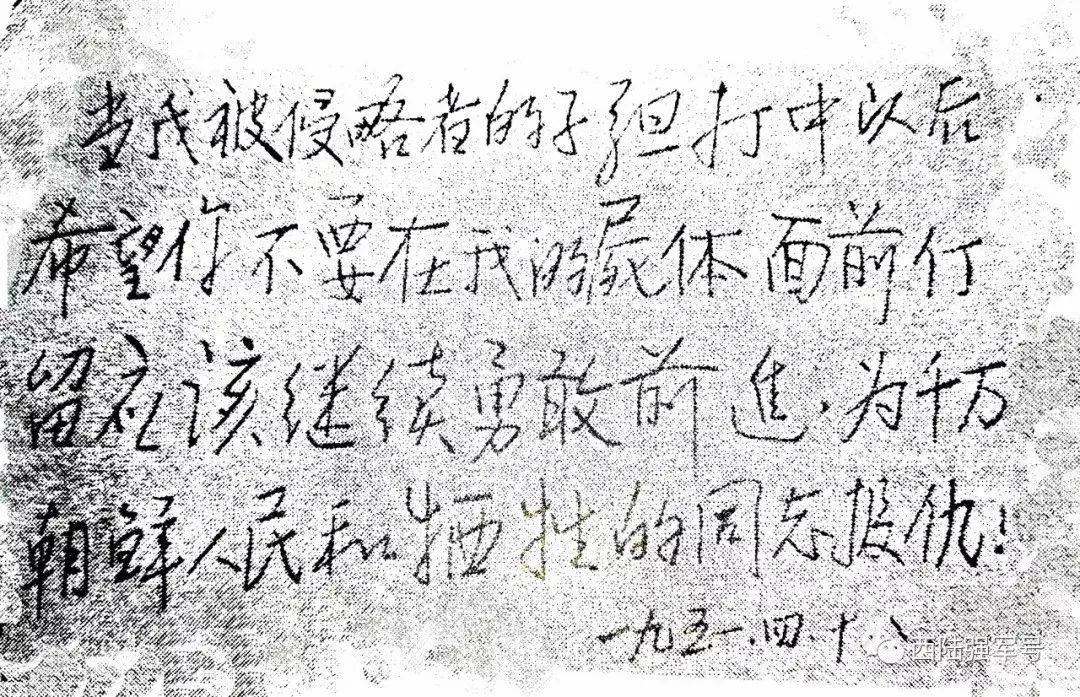 当我被侵略者的子弹打中以后
希望你不要在我的尸体面前停
留应该继续勇敢前进，为千万
朝鲜人民和牺牲的同志报仇！
一九五一.四.十八
西陆强军号